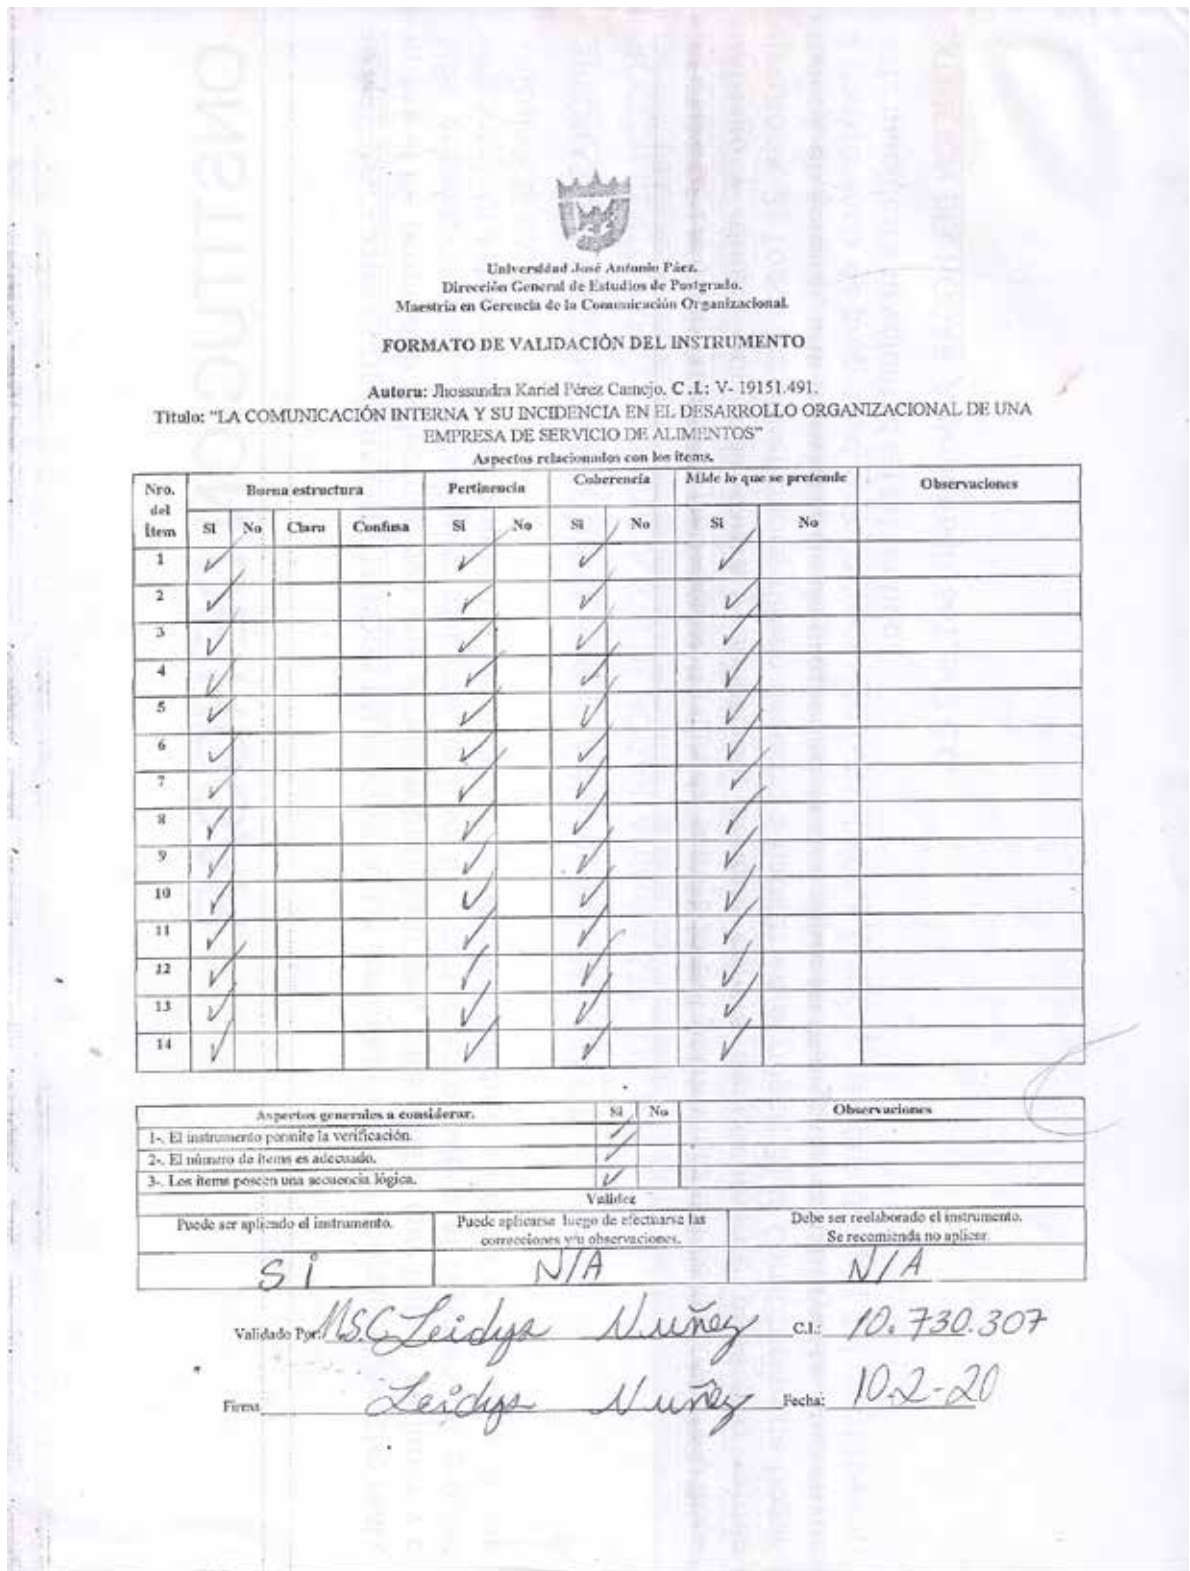 Universidad José Antonio Páez.
Dirección General de Estudios de Postgrado.
Maestría en Gerencia de la Comunicación Organizacional.
FORMATO DE VALIDACIÓN DEL INSTRUMENTO
Autora: Jhossandra Kariel Pérez Camejo. C.I.: V- 19151.491.
Titulo: "LA COMUNICACIÓN INTERNA Y SU INCIDENCIA EN EL DESARROLLO ORGANIZACIONAL DE UNA
EMPRESA DE SERVICIO DE ALIMENTOS"
Aspectos relacionados con los ítems.
Nro. del Ítem Buena estructura Pertinencia Coherencia Mide lo que se pretende Observaciones
Si No Clara Confusa Si No Si No Si No
1 ✓ ✓ ✓ ✓
2 ✓ ✓ ✓ ✓
3 ✓ ✓ ✓ ✓
4 ✓ ✓ ✓ ✓
5 ✓ ✓ ✓ ✓
6 ✓ ✓ ✓ ✓
7 ✓ ✓ ✓ ✓
8 ✓ ✓ ✓ ✓
9 ✓ ✓ ✓ ✓
10 ✓ ✓ ✓ ✓
11 ✓ ✓ ✓ ✓
12 ✓ ✓ ✓ ✓
13 ✓ ✓ ✓ ✓
14 ✓ ✓ ✓ ✓
Aspectos generales a considerar. Si No Observaciones
1-. El instrumento permite la verificación. ✓
2-. El número de ítems es adecuado. ✓
3-. Los ítems poseen una secuencia lógica. ✓
Validez
Puede ser aplicado el instrumento. Puede aplicarse luego de efectuarse las correcciones y/u observaciones. Debe ser reelaborado el instrumento. Se recomienda no aplicar.
Si N/A N/A
Validado Por: MSC Leidys Nuñez C.I.: 10.730.307
Firma Leidys Nuñez Fecha: 10-2-20